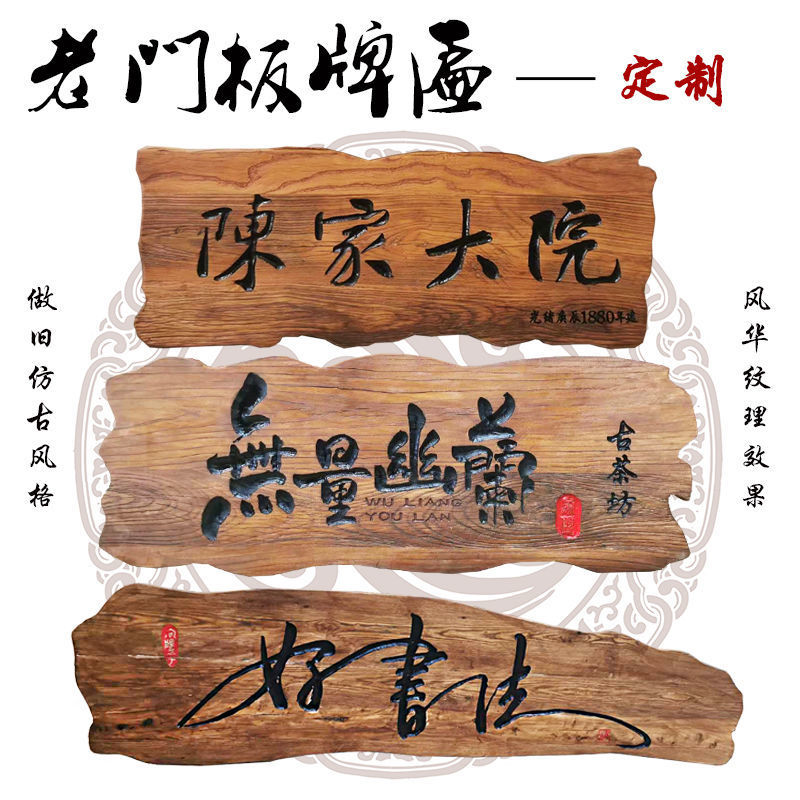 老門板牌匾——定制
陳家大院
光緒庚辰1880年造
做旧仿古风格
风华纹理效果
無量幽蘭
WU LIANG
YOU LAN
古茶坊
好書法